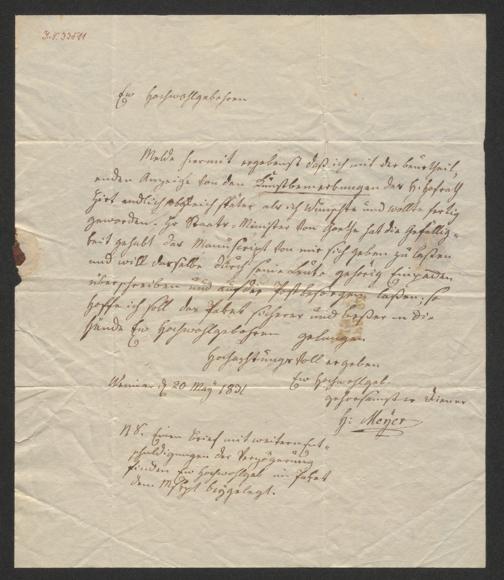 I.N. 33511
Ew Hochwohlgebohren
Melde hiermit ergebenst daß ich mit der beurtheil,
enden Anzeige von den Kunstbemerkungen des H. Hofrath
Hirt endlich obgleich später als ich wünschte und wollte fertig
geworden. Hr Staats-Minister von Goethe hat die Gefällig-
keit gehabt das Manuscript von mir sich geben zu laßen
und will dasselbe durch seine Leute gehörig Einpacken
überschreiben und auf der Post besorgen laßen; so
hoffe ich soll das Paket sicherer und beßer in die
Hände Ew Hochwohlgebohren gelangen
Hochachtungsvoll ergeben
Ew Hochwohlgeb.
Weimar d 20 May 1831
gehorsamster Diener
H: Meyer
N.S. Einen Brief mit weitern Ent-
schuldigungen der Verzögerung
finden Ew Hochwohlgeb im Paket
dem Mscpt beygelegt.